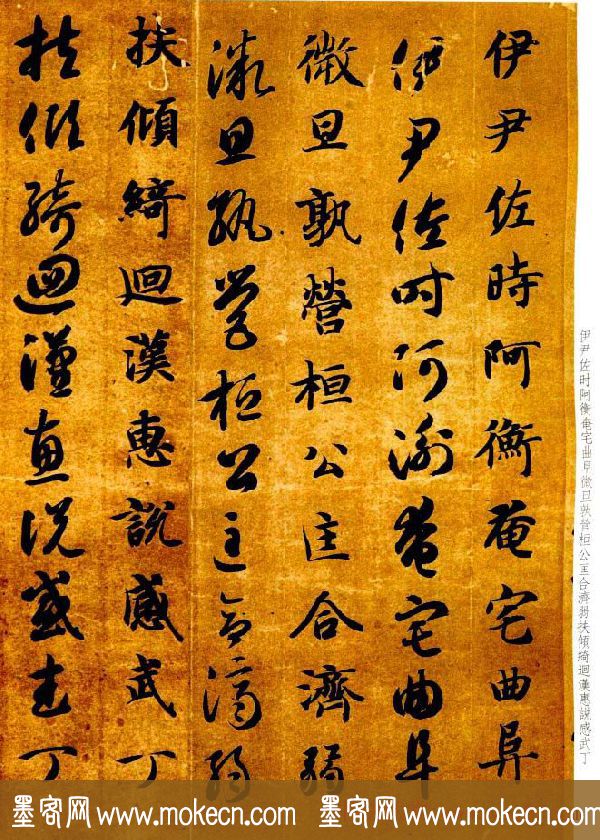 伊尹佐时阿衡奄宅曲阜微旦孰營桓公匡合濟弱扶傾綺迴漢惠說感武丁
伊尹佐時阿衡奄宅曲阜
伊尹佐時阿衡奄宅曲阜
微旦孰營桓公匡合濟弱
微旦孰營桓公匡合濟弱
扶傾綺迴漢惠說感武丁
扶傾綺迴漢惠說感武丁
墨客网 www.mokecn.com 墨客网 www.mokecn.com